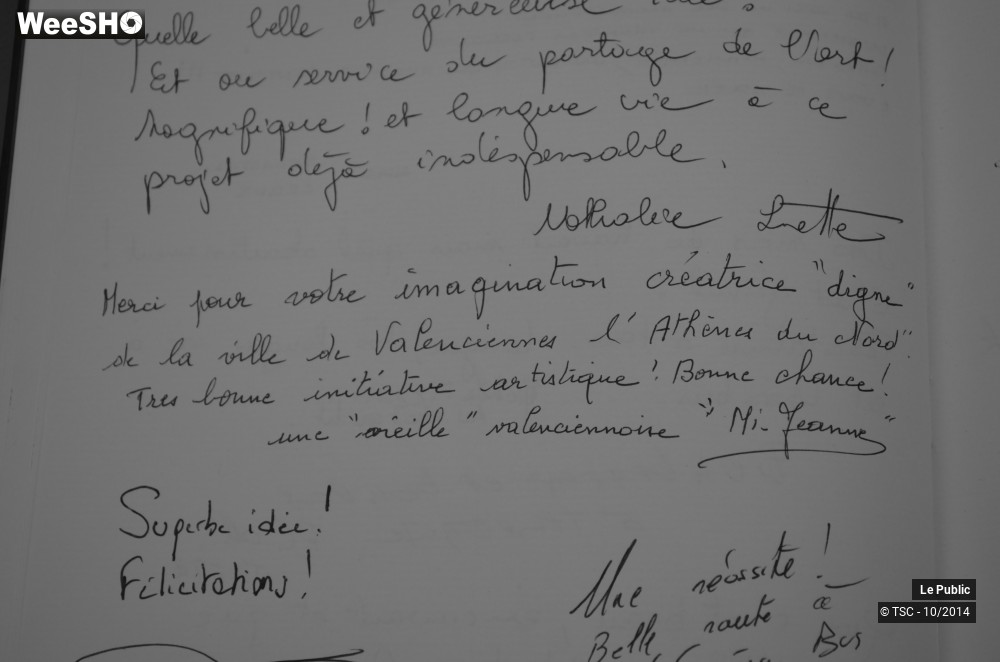 WeeSHO
Quelle belle et généreuse idée !
Et au service du partage de l'art !
Magnifique ! et longue vie à ce
projet déjà indispensable.
Nathalie
Merci pour votre imagination créatrice "digne"
de la ville de Valenciennes l'Athènes du Nord".
Tres bonne initiative artistique ! Bonne chance !
une "vieille" valenciennoise "Mi-Jeanne"
Superbe idée !
Félicitations !
Une réussite !
Belle route à
Le Public
© TSC - 10/2014